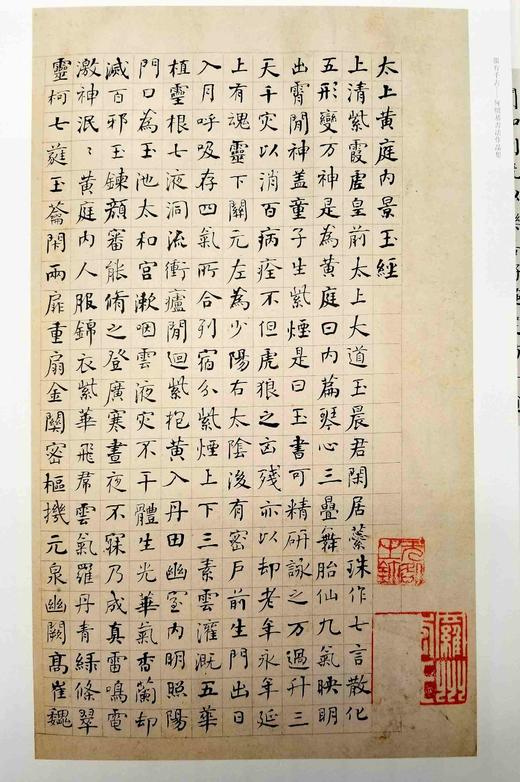 太上黃庭內景玉經
上清紫霞虛皇前太上大道玉晨君閑居蘂珠作七言散化
五形變万神是為黃庭曰內篇琴心三疊舞胎仙九氣映明
出霄間神盖童子生紫煙是曰玉書可精研詠之万過升三
天千灾以消百病痊不但虎狼之凶殘亦以却老年永年延
上有魂靈下關元左為少陽右太陰後有密户前生門出日
入月呼吸存四氣所合列宿分紫煙上下三素雲灌溉五華
植靈根七液洞流衝廬間迴紫抱黃入丹田幽室內明照陽
門口為玉池太和宮漱咽雲液灾不干體生光華氣香蘭却
滅百邪玉鍊顏審能脩之登廣寒晝夜不寐乃成真雷鳴電
激神泯〻黃庭內人服錦衣紫華飛帬雲氣羅丹青綠條翠
靈柯七蕤玉籥閑兩扉重扇金關密樞機元泉幽闕高崔魏